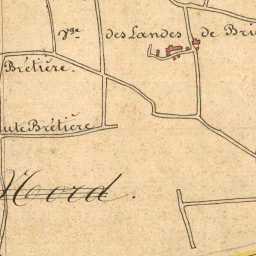 Vge des Landes de Bri
Brétière.
aute Brétière
Nord.